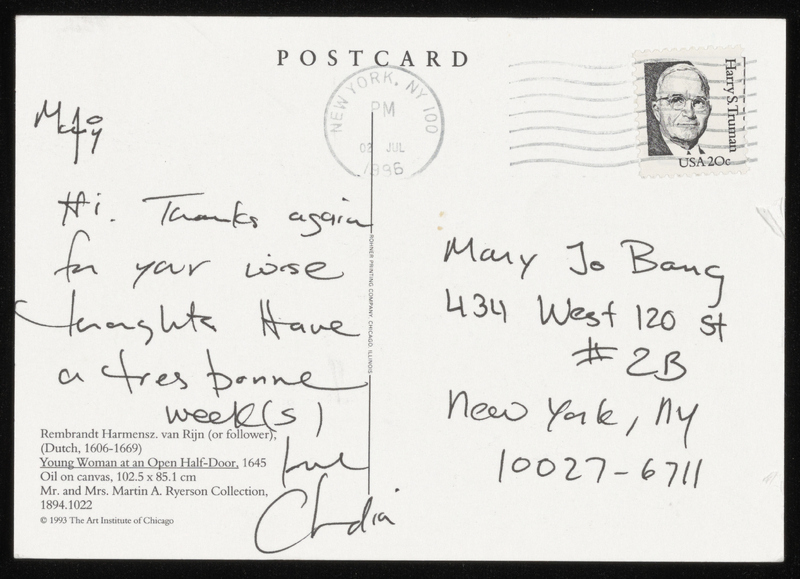 POSTCARD
NEW YORK, NY 100
PM
02 JUL
1996
Harry S. Truman
USA 20c
Hi. Thanks again
for your wise
thoughts Have
a tres bonne
week(s)
love
Claudia
ROHNER PRINTING COMPANY, CHICAGO, ILLINOIS
Mary Jo Bang
434 West 120 St
# 2B
New York, NY
10027-6711
Rembrandt Harmensz. van Rijn (or follower),
(Dutch, 1606-1669)
Young Woman at an Open Half-Door, 1645
Oil on canvas, 102.5 x 85.1 cm
Mr. and Mrs. Martin A. Ryerson Collection,
1894.1022
© 1993 The Art Institute of Chicago